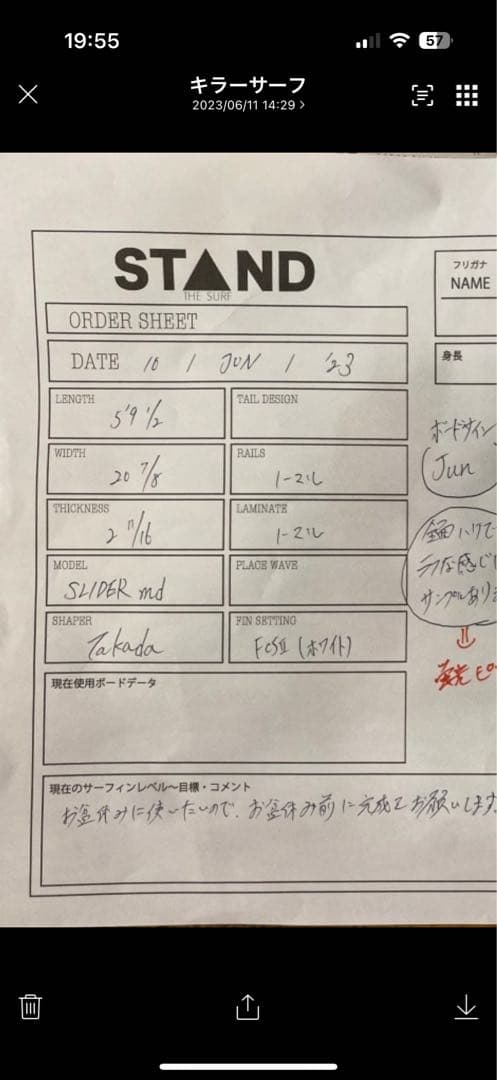 19:55
57
キラーサーフ
2023/06/11 14:29 ›
STAND
THE SURF
ORDER SHEET
DATE 10 / JUN / '23
LENGTH
5'9 1/2
TAIL DESIGN
WIDTH
20 7/8
RAILS
ノーマル
THICKNESS
2 11/16
LAMINATE
ノーマル
MODEL
SLIDER md
PLACE WAVE
SHAPER
Takada
FIN SETTING
FCSⅡ (ホワイト)
現在使用ボードデータ
現在のサーフィンレベル〜目標・コメント
お盆休みに使いたいので、お盆休み前に完成をお願いします
フリガナ
NAME
身長
ボードサイン
Jun
ラフな感じ
サンプルあり
⇓
蛍光ピ